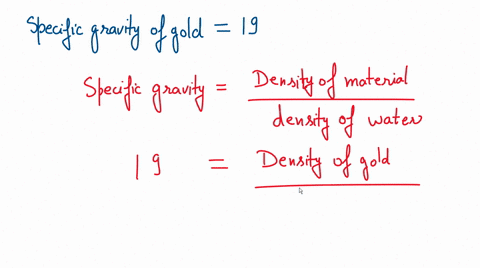 Specific gravity of gold = 19
Specific gravity = Density of material
density of water
19 = Density of gold